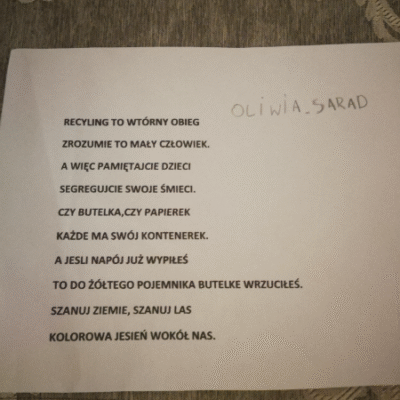 OLIWIA SARAD
RECYLING TO WTÓRNY OBIEG
ZROZUMIE TO MAŁY CZŁOWIEK.
A WIĘC PAMIĘTAJCIE DZIECI
SEGREGUJCIE SWOJE ŚMIECI.
CZY BUTELKA,CZY PAPIEREK
KAŻDE MA SWÓJ KONTENEREK.
A JESLI NAPÓJ JUŻ WYPIŁEŚ
TO DO ŻÓŁTEGO POJEMNIKA BUTELKE WRZUCIŁEŚ.
SZANUJ ZIEMIE, SZANUJ LAS
KOLOROWA JESIEŃ WOKÓŁ NAS.